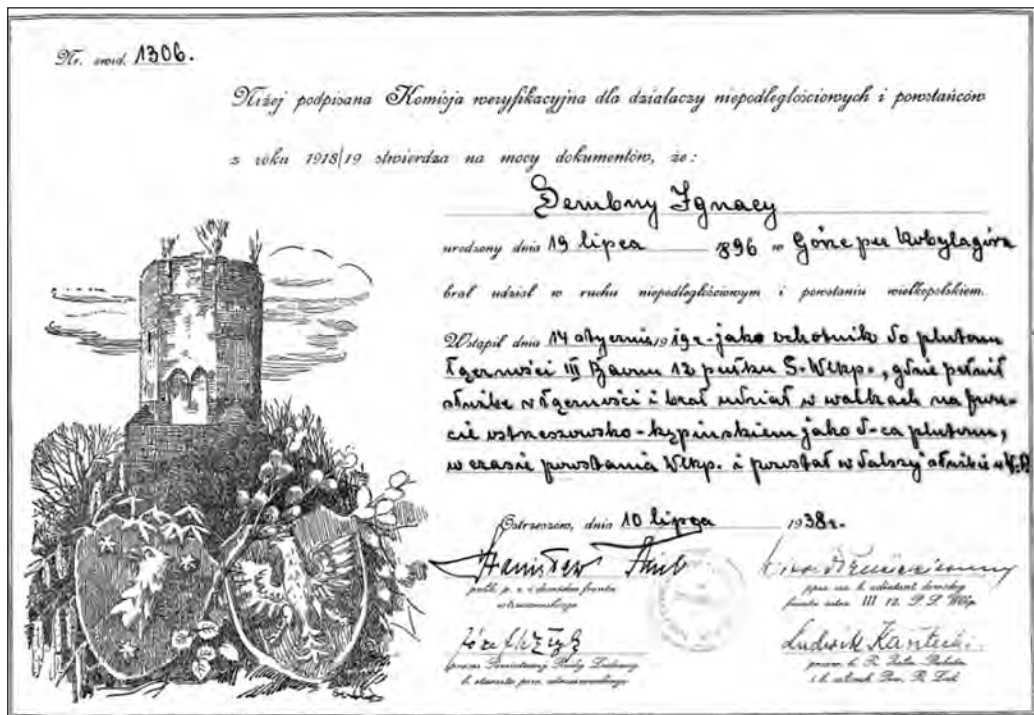 Nr. ewid. 1306.
Niżej podpisana Komisja weryfikacyjna dla działaczy niepodległościowych i powstańców
z roku 1918/19 stwierdza na mocy dokumentów, że:
Derubny Ignacy
urodzony dnia 19 lipca 1896 w Górze pow Kobylagóra
brał udział w ruchu niepodległościowym i powstaniu wielkopolskiem.
Wstąpił dnia 14 stycznia 1919r - jako ochotnik do plutonu
łączności III Baonu 12 pułku S. Wlkp., gdzie pełnił
służbę w łączności i brał udział w walkach na fron-
cie ostrzeszowsko - kępińskiem jako d-ca plutonu,
w czasie powstania Wlkp. i pozostał w dalszej służbie w
Ostrzeszów, dnia 10 lipca 1938r.
Stanisław
ppułk. p. s. i dowódca frontu
ostrzeszowskiego
ppor. rez. b. adiutant dowódcy
frontu ostrz. III 12. P. S. Wlkp.
prezes Powiatowej Rady Ludowej
b. starosta pow. ostrzeszowskiego
Ludwik
i b. członek Pow. R. Lud.